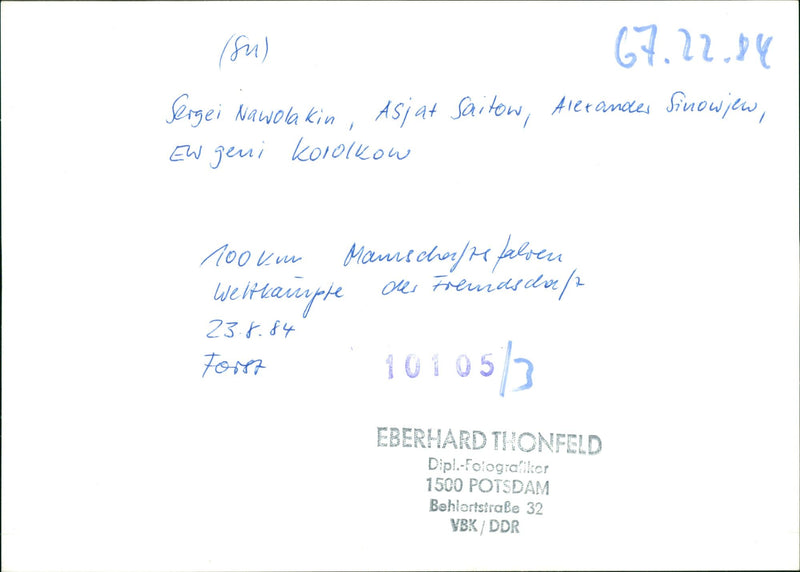 (SU)
67.22.84
Sergei Nawolakin, Asjat Saitow, Alexander Sinowjew,
Ewgeni Korolkow
100 Km Mannschaftsfahren
Wettkämpfe der Freundschaft
23.8.84
Forst
10105/3
EBERHARD THONFELD
Dipl.-Fotografiker
1500 POTSDAM
Behlertstraße 32
VBK/DDR